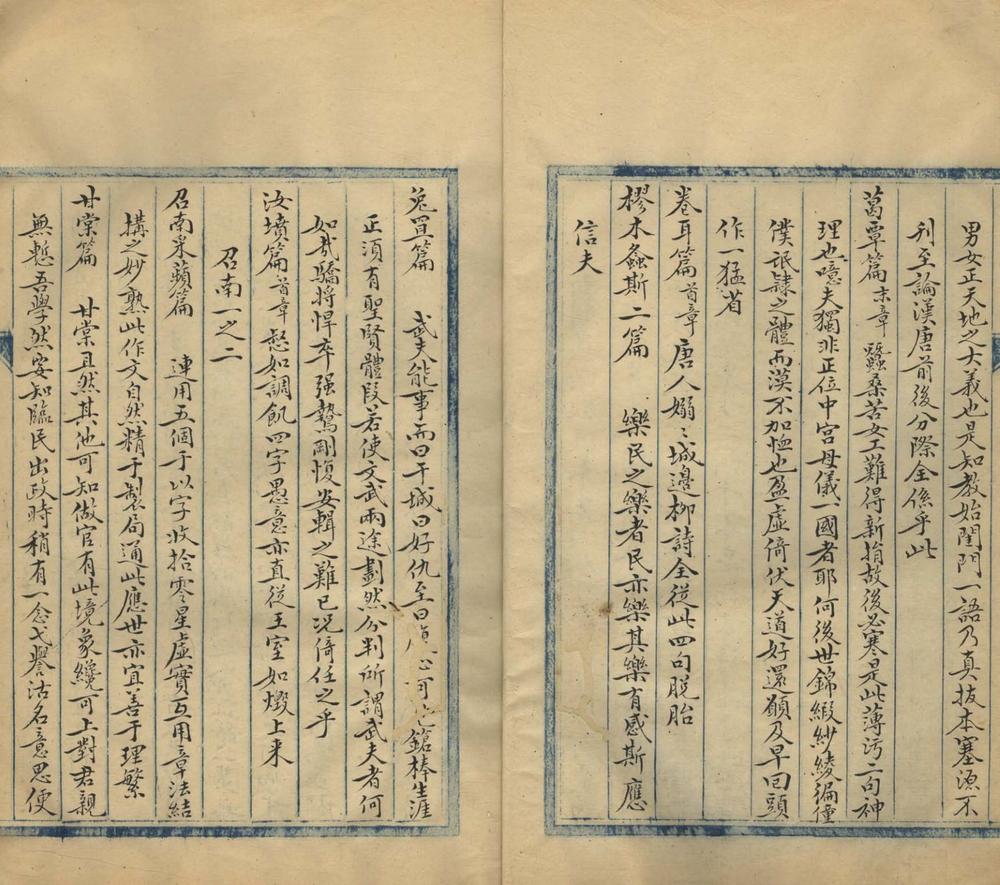 男女正天地之大義也是知教始閨門一語乃真拔本塞源不
刊至論漢唐前後分際全係乎此
葛覃篇末章 蠶桑苦女工難得新捐故後必寒是此薄污二句神
理也噫夫獨非正位中宮母儀一國者耶何後世錦緞紗綾徧僮
僕詆隸之體而漠不加恤也盈虛倚伏天道好還願及早回頭
作一猛省
卷耳篇首章 唐人嫋〻城邊柳詩全從此四句脫胎
樛木螽斯二篇 樂民之樂者民亦樂其樂有感斯應
信夫
兔罝篇 武夫能事而曰干城曰好仇至曰心可鎗棒生涯
正須有聖賢體段若使文武兩途劃然分判所謂武夫者何
如哉驕將悍卒强鷙剛愎安輯之難已況倚任之乎
汝墳篇首章 惄如調飢四字愚意亦直從王室如燬上来
召南一之二
召南采蘋篇 連用五個于以字收拾零星虛實互用章法結
搆之妙熟此作文自然精于製局通此應世亦宜善于理繁
甘棠篇 甘棠且然其他可知做官有此境象纔可上對君親
無慙吾學然要知臨民出政時稍有一念弋譽沽名意思便